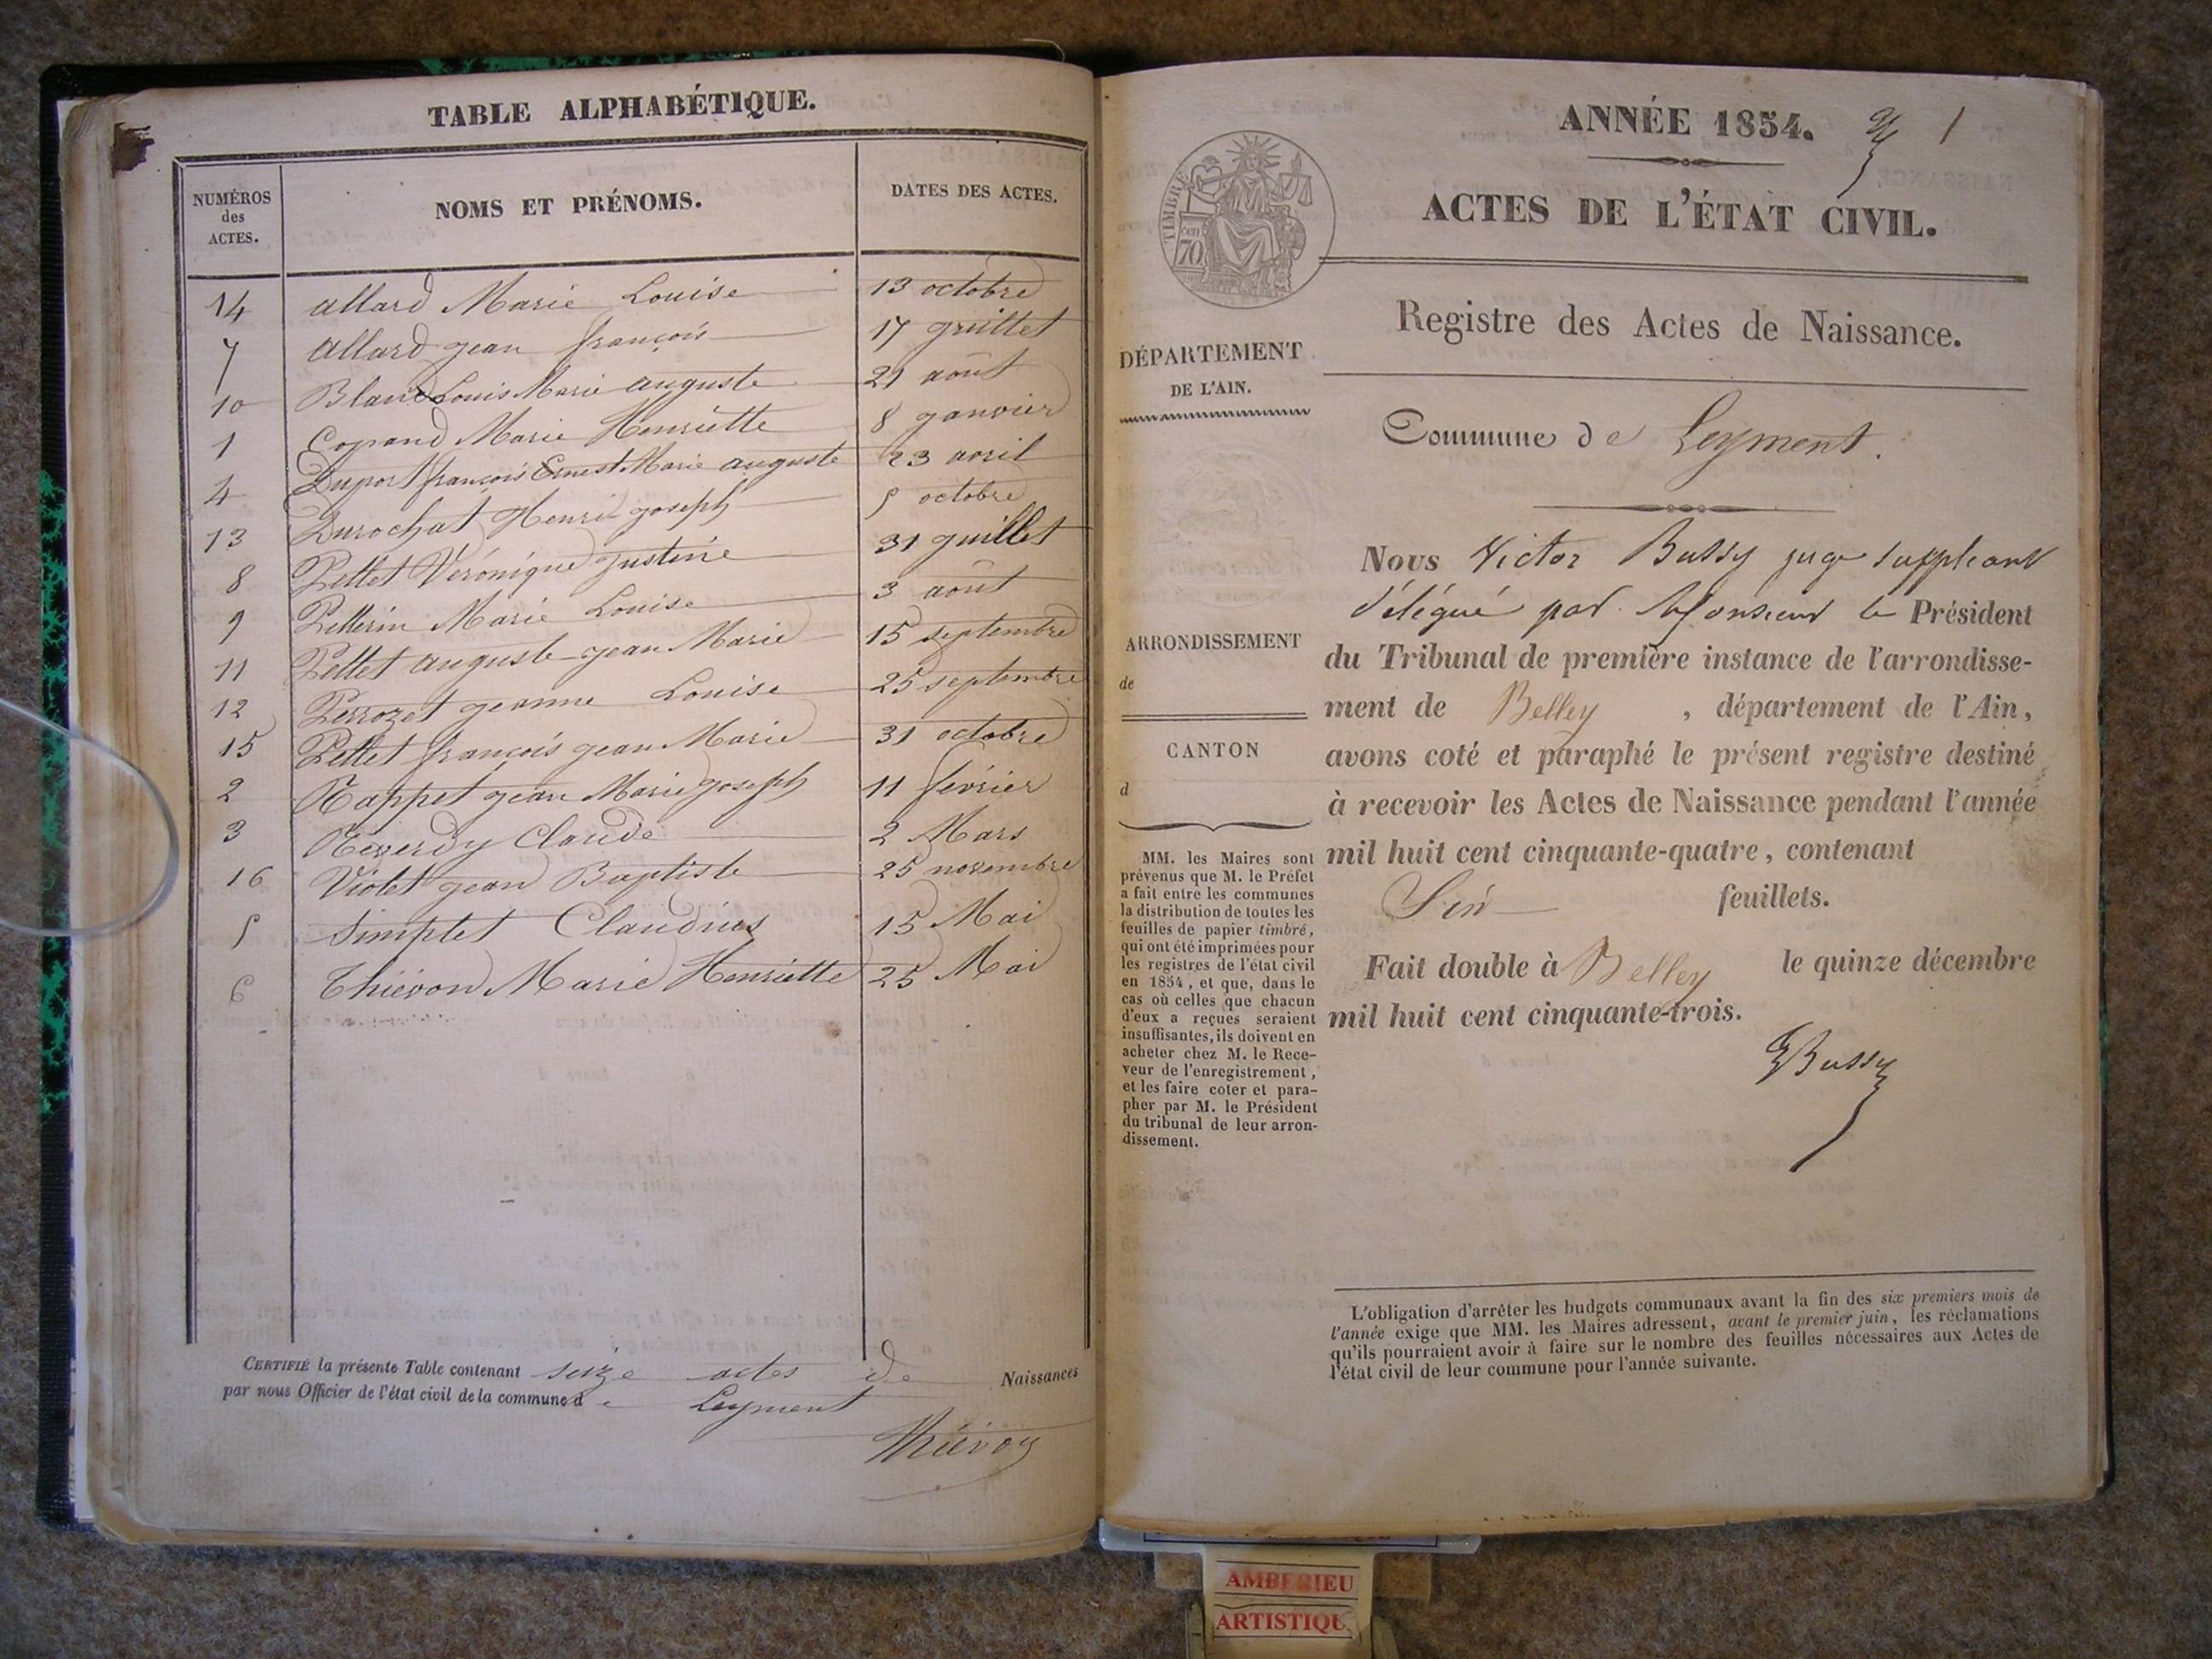 TABLE ALPHABÉTIQUE.
NUMÉROS des ACTES. NOMS ET PRÉNOMS. DATES DES ACTES.
14 allard Marie Louise 13 octobre
7 allard jean françois 17 guillet
10 Blanc Louis Marie auguste 21 août
1 Copand Marie Henriette 8 ganvier
4 Duport françois Ernest Marie auguste 23 avril
13 Durochat Henri goseph 5 octobre
8 Pellet Véronique justine 31 guillet
9 Pellerin Marie Louise 3 août
11 Pellet auguste jean Marie 15 septembre
12 Perrozet jeanne Louise 25 septembre
15 Pellet françois jean Marie 31 octobre
2 Rappet jean Marie joseph 11 février
3 Reverdy Claude 2 Mars
16 Violet jean Baptiste 25 novembre
5 Simplet Claudius 15 Mai
6 Thiévon Marie Henriette 25 Mai
CERTIFIÉ la présente Table contenant seize actes de Naissances
par nous Officier de l'état civil de la commune de Leyment
Thiévon
ANNÉE 1854. 1
ACTES DE L'ÉTAT CIVIL.
TIMBRE
cen
70
Registre des Actes de Naissance.
DÉPARTEMENT
DE L'AIN.
Commune de Leyment.
ARRONDISSEMENT
de
CANTON
d
MM. les Maires sont
prévenus que M. le Préfet
a fait entre les communes
la distribution de toutes les
feuilles de papier timbré,
qui ont été imprimées pour
les registres de l'état civil
en 1854, et que, dans le
cas où celles que chacun
d'eux a reçues seraient
insuffisantes, ils doivent en
acheter chez M. le Rece-
veur de l'enregistrement,
et les faire coter et para-
pher par M. le Président
du tribunal de leur arron-
dissement.
Nous Victor Bussy juge suppléant
délégué par Monsieur le Président
du Tribunal de première instance de l'arrondisse-
ment de Belley, département de l'Ain,
avons coté et paraphé le présent registre destiné
à recevoir les Actes de Naissance pendant l'année
mil huit cent cinquante-quatre, contenant
Six feuillets.
Fait double à Belley le quinze décembre
mil huit cent cinquante-trois.
VBussy
L'obligation d'arrêter les budgets communaux avant la fin des six premiers mois de
l'année exige que MM. les Maires adressent, avant le premier juin, les réclamations
qu'ils pourraient avoir à faire sur le nombre des feuilles nécessaires aux Actes de
l'état civil de leur commune pour l'année suivante.
AMBERIEU
ARTISTIQU